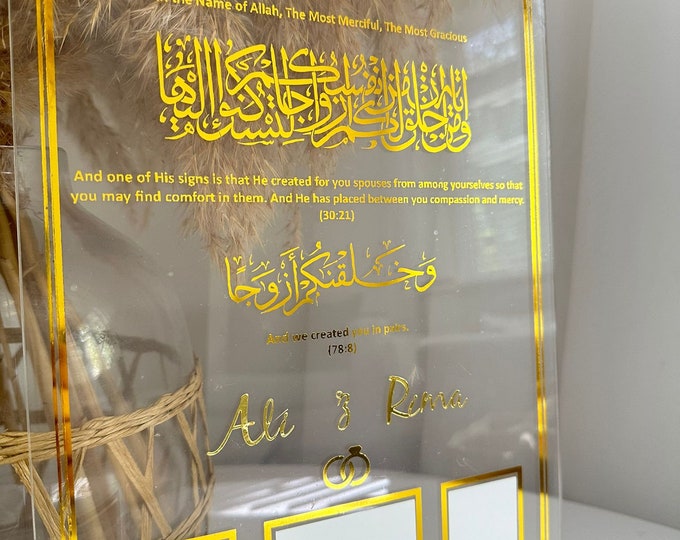 the Name of Allah, The Most Merciful, The Most Gracious
ومن آياته أن خلق لكم من أنفسكم أزواجا لتسكنوا إليها
And one of His signs is that He created for you spouses from among yourselves so that
you may find comfort in them. And He has placed between you compassion and mercy.
(30:21)
وَخَلَقْنَكُمْ أَزْوَجًا
And we created you in pairs.
(78:8)
Ali & Rema